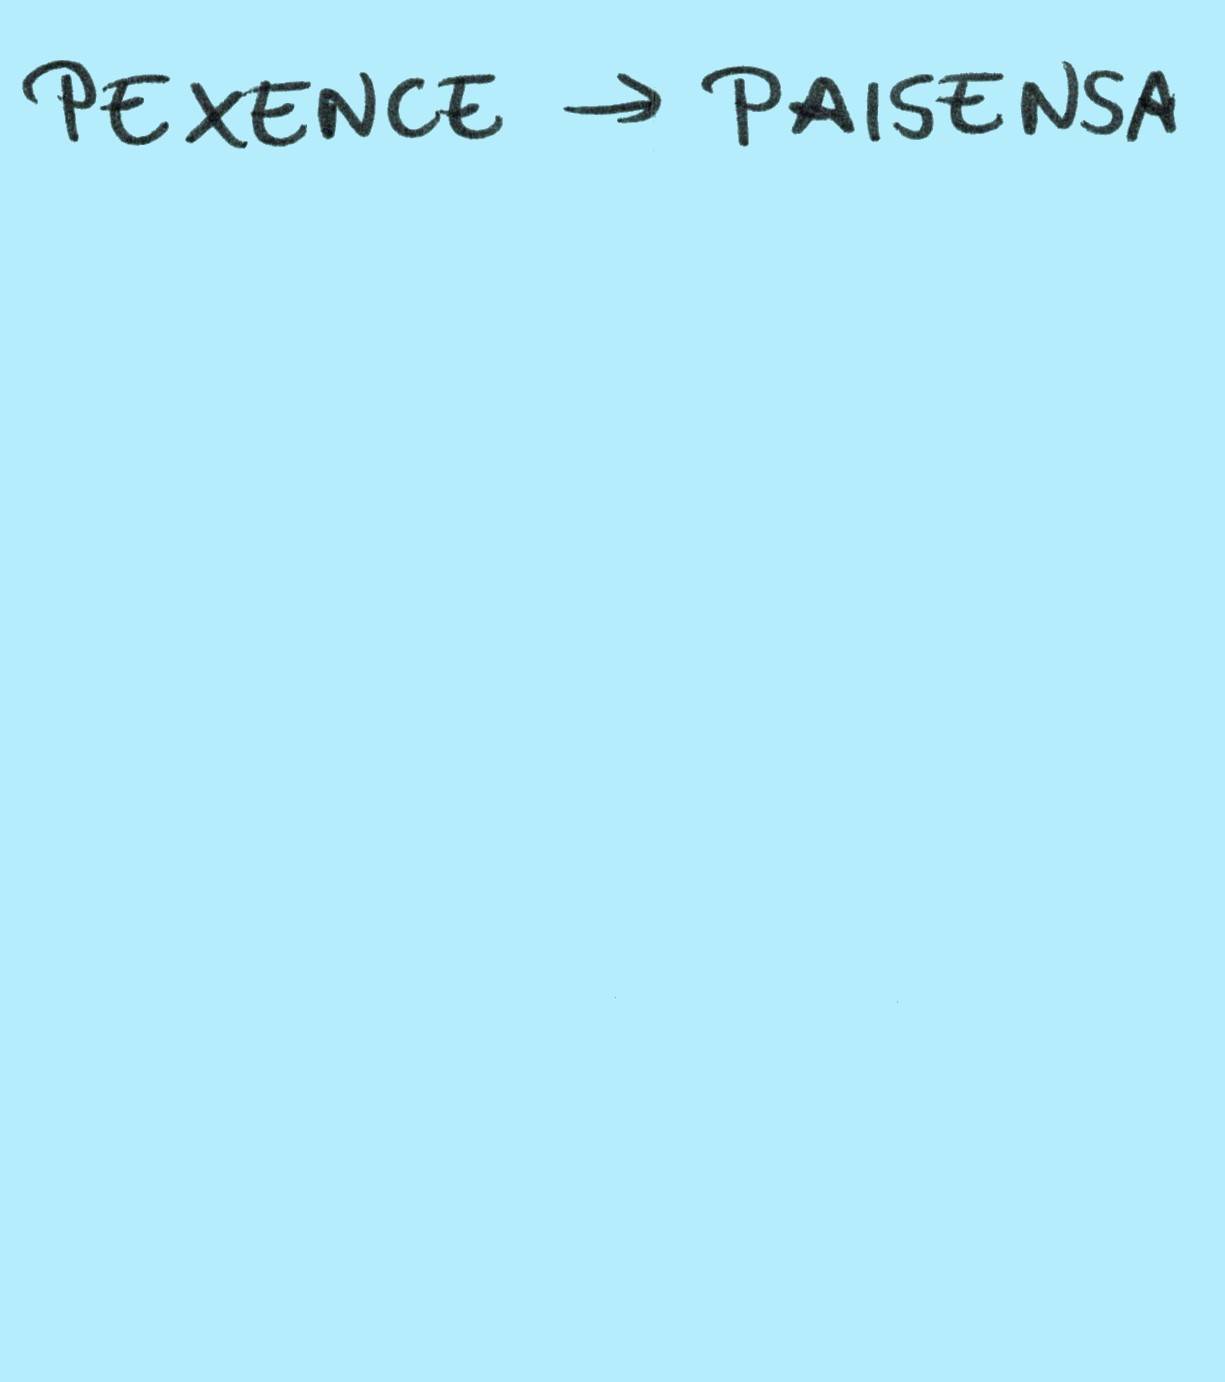 PEXENCE → PAISENSA